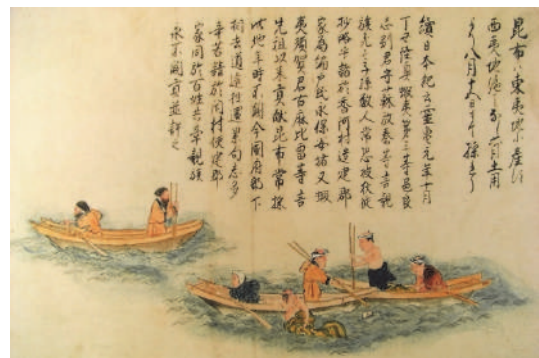 昆布ハ東夷地の産に
西夷地絶てなし六月土用
より八月十五日まて採る
續日本紀云靈亀元年十月
丁丑陸奥蝦夷第三等邑良
志別君宇蘇弥奈等言親
族死亡子孫數人常恐被狄徒
抄略乎請於香河村造建郡
家為編戸民永保安堵又蝦
夷須賀君古麻比留等言
先祖以来貢献昆布常採
此地年時不闕今國府郭下
相去道遠往還累旬甚多
辛苦請於閇村便建郡
家同於百姓共率親族
永不闕貢並許之